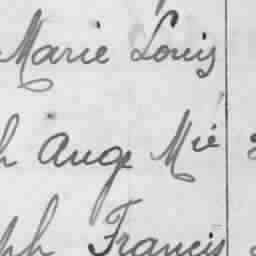 Marie Louis
h Ange Mie
ph Francis